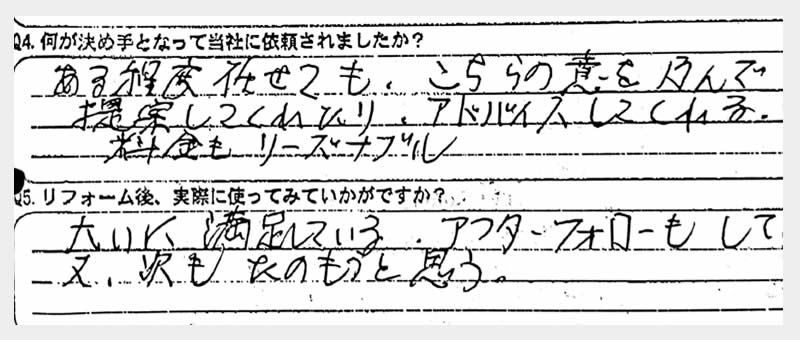 Q4. 何が決め手となって当社に依頼されましたか?
ある程度任せても、こちらの意をくんで
提案してくれたり、アドバイスしてくれる。
料金もリーズナブル
Q5. リフォーム後、実際に使ってみていかがですか?
大いに満足している。アフターフォローもして
又、次もたのもうと思う。